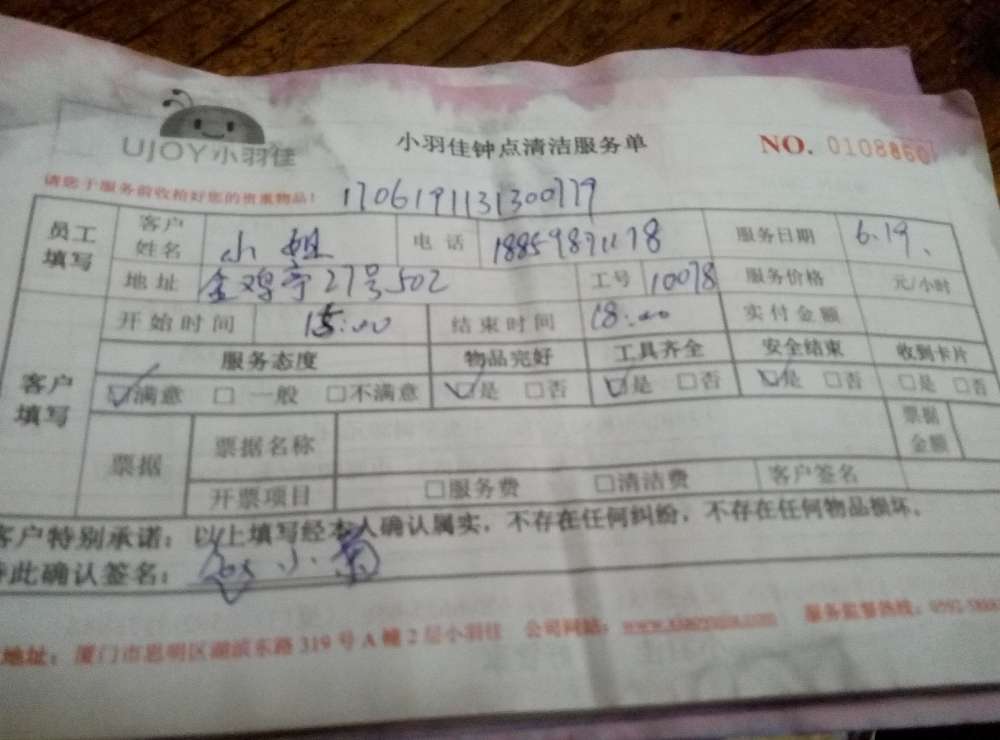 UJOY小羽佳
小羽佳钟点清洁服务单
NO. 0108860
请您于服务前收拾好您的贵重物品!
1706191131300779
员工填写
客户姓名 小姐 电话 18859871178 服务日期 6.19、
地址 金鸡亭27号502 工号 10078 服务价格 元/小时
客户填写
开始时间 15:00 结束时间 18:00 实付金额
服务态度 物品完好 工具齐全 安全结束 收到卡片
☑满意 □一般 □不满意 ☑是 □否 ☑是 □否 ☑是 □否 □是 □否
票据 票据名称 票据金额
开票项目 □服务费 □清洁费 客户签名
客户特别承诺:以上填写经本人确认属实,不存在任何纠纷,不存在任何物品损坏。
此确认签名: 小菊
地址:厦门市思明区湖滨东路 319 号 A 幢 2 层小羽佳 公司网站: 服务监督热线: